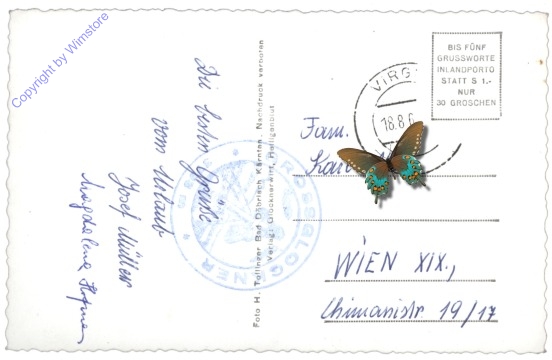 Copyright by Wimstore
Die besten Grüße
vom Urlaub
Josef Müller
Magdalena
Foto H. Tollinger Bad Döbriach Kärnten. Nachdruck verboten
Verlag: Glocknerwirt, Heiligenblut
GROSSGLOCKNER
BIS FÜNF
GRUSSWORTE
INLANDPORTO
STATT S 1.-
NUR
30 GROSCHEN
VIRG
18.8.6
Fam.
WIEN XIX.,
Chimanistr 19/17